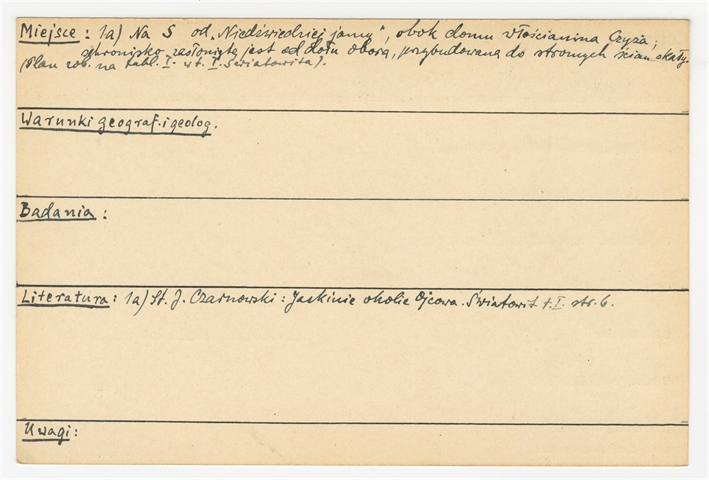 Miejsce: 1a) Na S od „Niedźwiedziej jamy", obok domu włościanina Czyża;
schronisko zasłonięte jest od dołu oborą, przybudowaną do stromych ścian skały.
(Plan zob. na tabl. I. w t. I. Światowita).
Warunki geograf. i geolog.
Badania:
Literatura: 1a) St. J. Czarnowski: Jaskinie okolic Ojcowa. Światowit t. I. str. 6.
Uwagi: